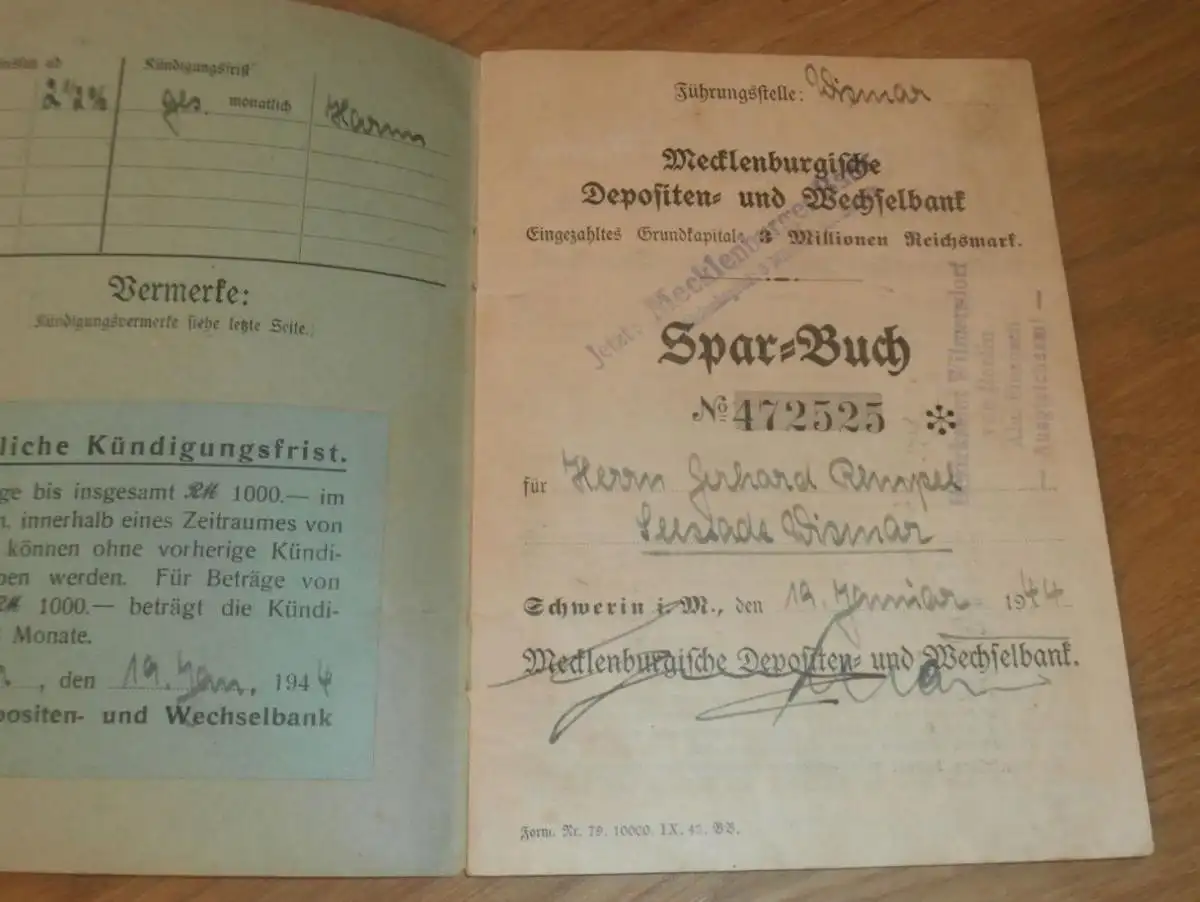 Kündigungsfrist
2 1/2 %
ges. monatlich
Vermerke:
Kündigungsvermerke siehe letzte Seite.
liche Kündigungsfrist.
ge bis insgesamt RM 1000.— im
n. innerhalb eines Zeitraumes von
können ohne vorherige Kündi-
ben werden. Für Beträge von
RM 1000.— beträgt die Kündi-
Monate.
, den 19. Jan. 1944
positen- und Wechselbank
Führungsstelle: Wismar
Mecklenburgische
Depositen- und Wechselbank
Eingezahltes Grundkapital: 3 Millionen Reichsmark.
Jetzt: Mecklenburger
Spar-Buch
No 472525
für Herrn Gerhard Rempel
Seestadt Wismar
Schwerin i. M., den 19. Januar 1944
Mecklenburgische Depositen- und Wechselbank.
Bezirksamt Wilmersdorf
von Berlin
Abt. Finanzen
— Ausgleichsamt —
Form. Nr. 79. 10000. IX. 42.